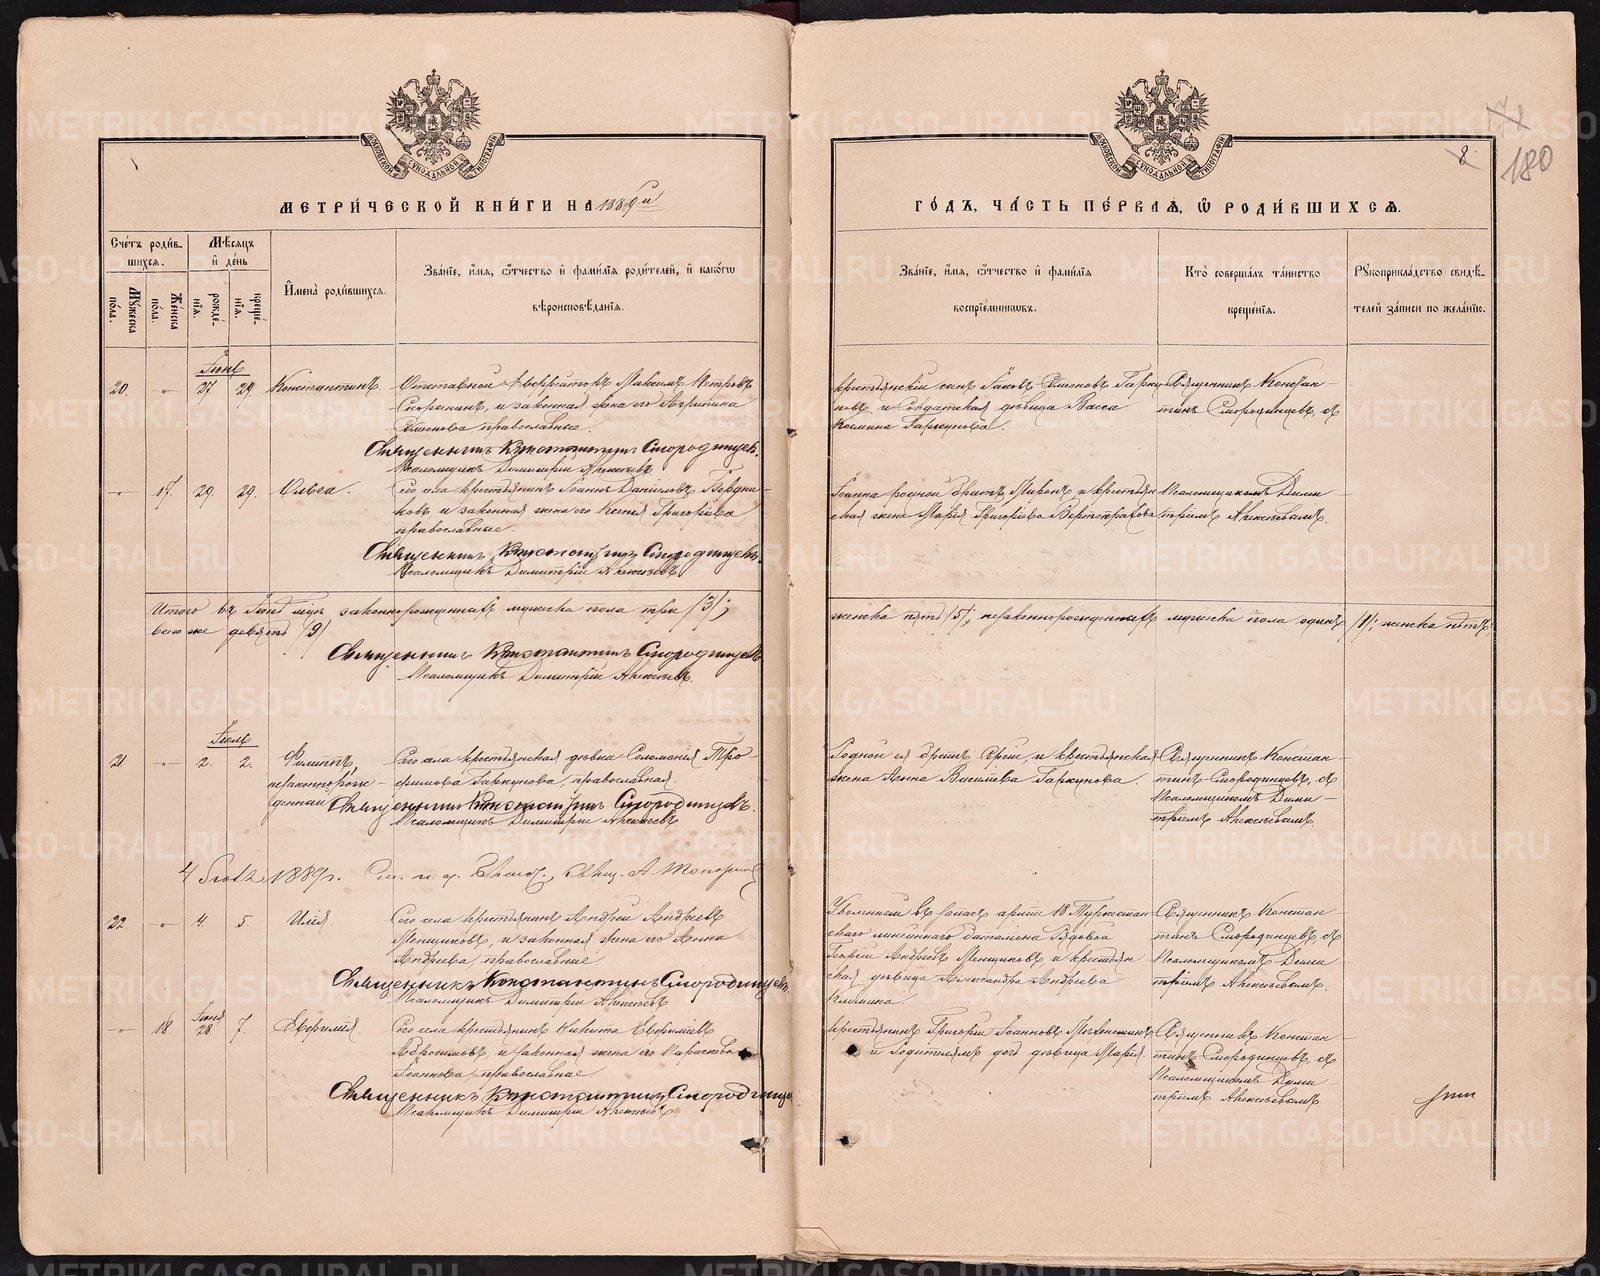 МЕТРИ́ЧЕСКОЙ КНИ́ГИ НА 1889 й
Сче́тъ роди́в-
шихся.
Мѣ́сяцъ
и де́нь
Му́жеска
по́ла.
Же́нска
по́ла.
рожде́-
нія.
креще́-
нія.
Имена̀ роди́вшихся.
Зва́ніе, и́мя, о́тчество и фами́лія роди́телей, и како́гѡ
вѣроисповѣ́данія.
Іюнь
20. " 27 29 Константинъ
Отставной Ефрейторъ Максимъ Петровъ
и законная жена его Агрипина
Семенова православные.
Священникъ Константинъ Смородинцевъ.
Псаломщикъ Димитрій Алексѣевъ
" 17. 29. 29. Ольга.
Сего села крестьянинъ Іоаннъ Даніиловъ Бердни-
ковъ и законная жена его Ксенія Григоріева
православные.
Священникъ Константинъ Смородинцевъ.
Псаломщикъ Димитрій Алексѣевъ
Итого въ Іюнѣ м-цѣ законнорожденныхъ мужеска пола три /3/;
всего же девять /9/
Священникъ Константинъ Смородинцевъ
Псаломщикъ Димитрій Алексѣевъ.
Іюль
21. " 2. 2. Филиппъ,
незаконнорож-
денный
Сего села крестьянская дѣвка Соломонія Тро
фимова Гаркунова, православная.
Священникъ Константинъ Смородинцевъ.
Псаломщикъ Димитрій Алексѣевъ
1889 г.
22. " 4. 5. Илія.
Сего села крестьянинъ Андрей Андреевъ
Менщиковъ, и законная жена его Анна
Андреева, православные.
Священникъ Константинъ Смородинцевъ.
Псаломщикъ Димитрій Алексѣевъ
Іюня
" 18 28 7. Евфимія.
Сего села крестьянинъ Никита Евфиміевъ
Абросимовъ, и законная жена его Параскева
Іоаннова православные.
Священникъ Константинъ Смородинцевъ
Псаломщикъ Димитрій Алексѣевъ.
8.
180
ГО́ДЪ, ЧА́СТЬ ПЕ́РВАЯ, Ѡ РОДИ́ВШИХСЯ.
Зва́ніе, и́мя, о́тчество и фами́лія
воспріе́мникѡвъ.
Кто̀ соверша́лъ та́инство
креще́нія.
Рꙋкоприкла́дство свидѣ́-
телей за́писи по жела́нію.
крестьянскій сынъ Іаковъ Семеновъ Гарку
новъ и Солдатская дѣвица Васса
Космина Гаркунова.
Священникъ Констан-
тинъ Смородинцевъ, съ
Іоанна родной братъ Миронъ и крестьян
ская жена Марія Григоріева Вертопрахова
Псаломщикомъ Дими
тріемъ Алексѣевымъ.
женска пять /5/, незаконнорожденныхъ мужеска пола одинъ /1/; женска нѣтъ,
Родной ея братъ Сергій и крестьянская
жена Анна Васильева Гаркунова.
Священникъ Констан-
тинъ Смородинцевъ, съ
Псаломщикомъ Дими-
тріемъ Алексѣевымъ
Уволенный въ запасъ арміи 18 Туркестан
скаго линейнаго баталіона Рядовой
Георгій Андреевъ Менщиковъ и крестьян
ская дѣвица Александра Андреева
Священникъ Констан
тинъ Смородинцевъ, съ
Псаломщикомъ Дими
тріемъ Алексѣевымъ.
Крестьянинъ Григорій Іоанновъ
и Родителямъ дочь дѣвица Марія.
Священникъ Констан
тинъ Смородинцевъ, съ
Псаломщикомъ Дими-
тріемъ Алексѣевымъ.
METRIKI.GASO-URAL.RU